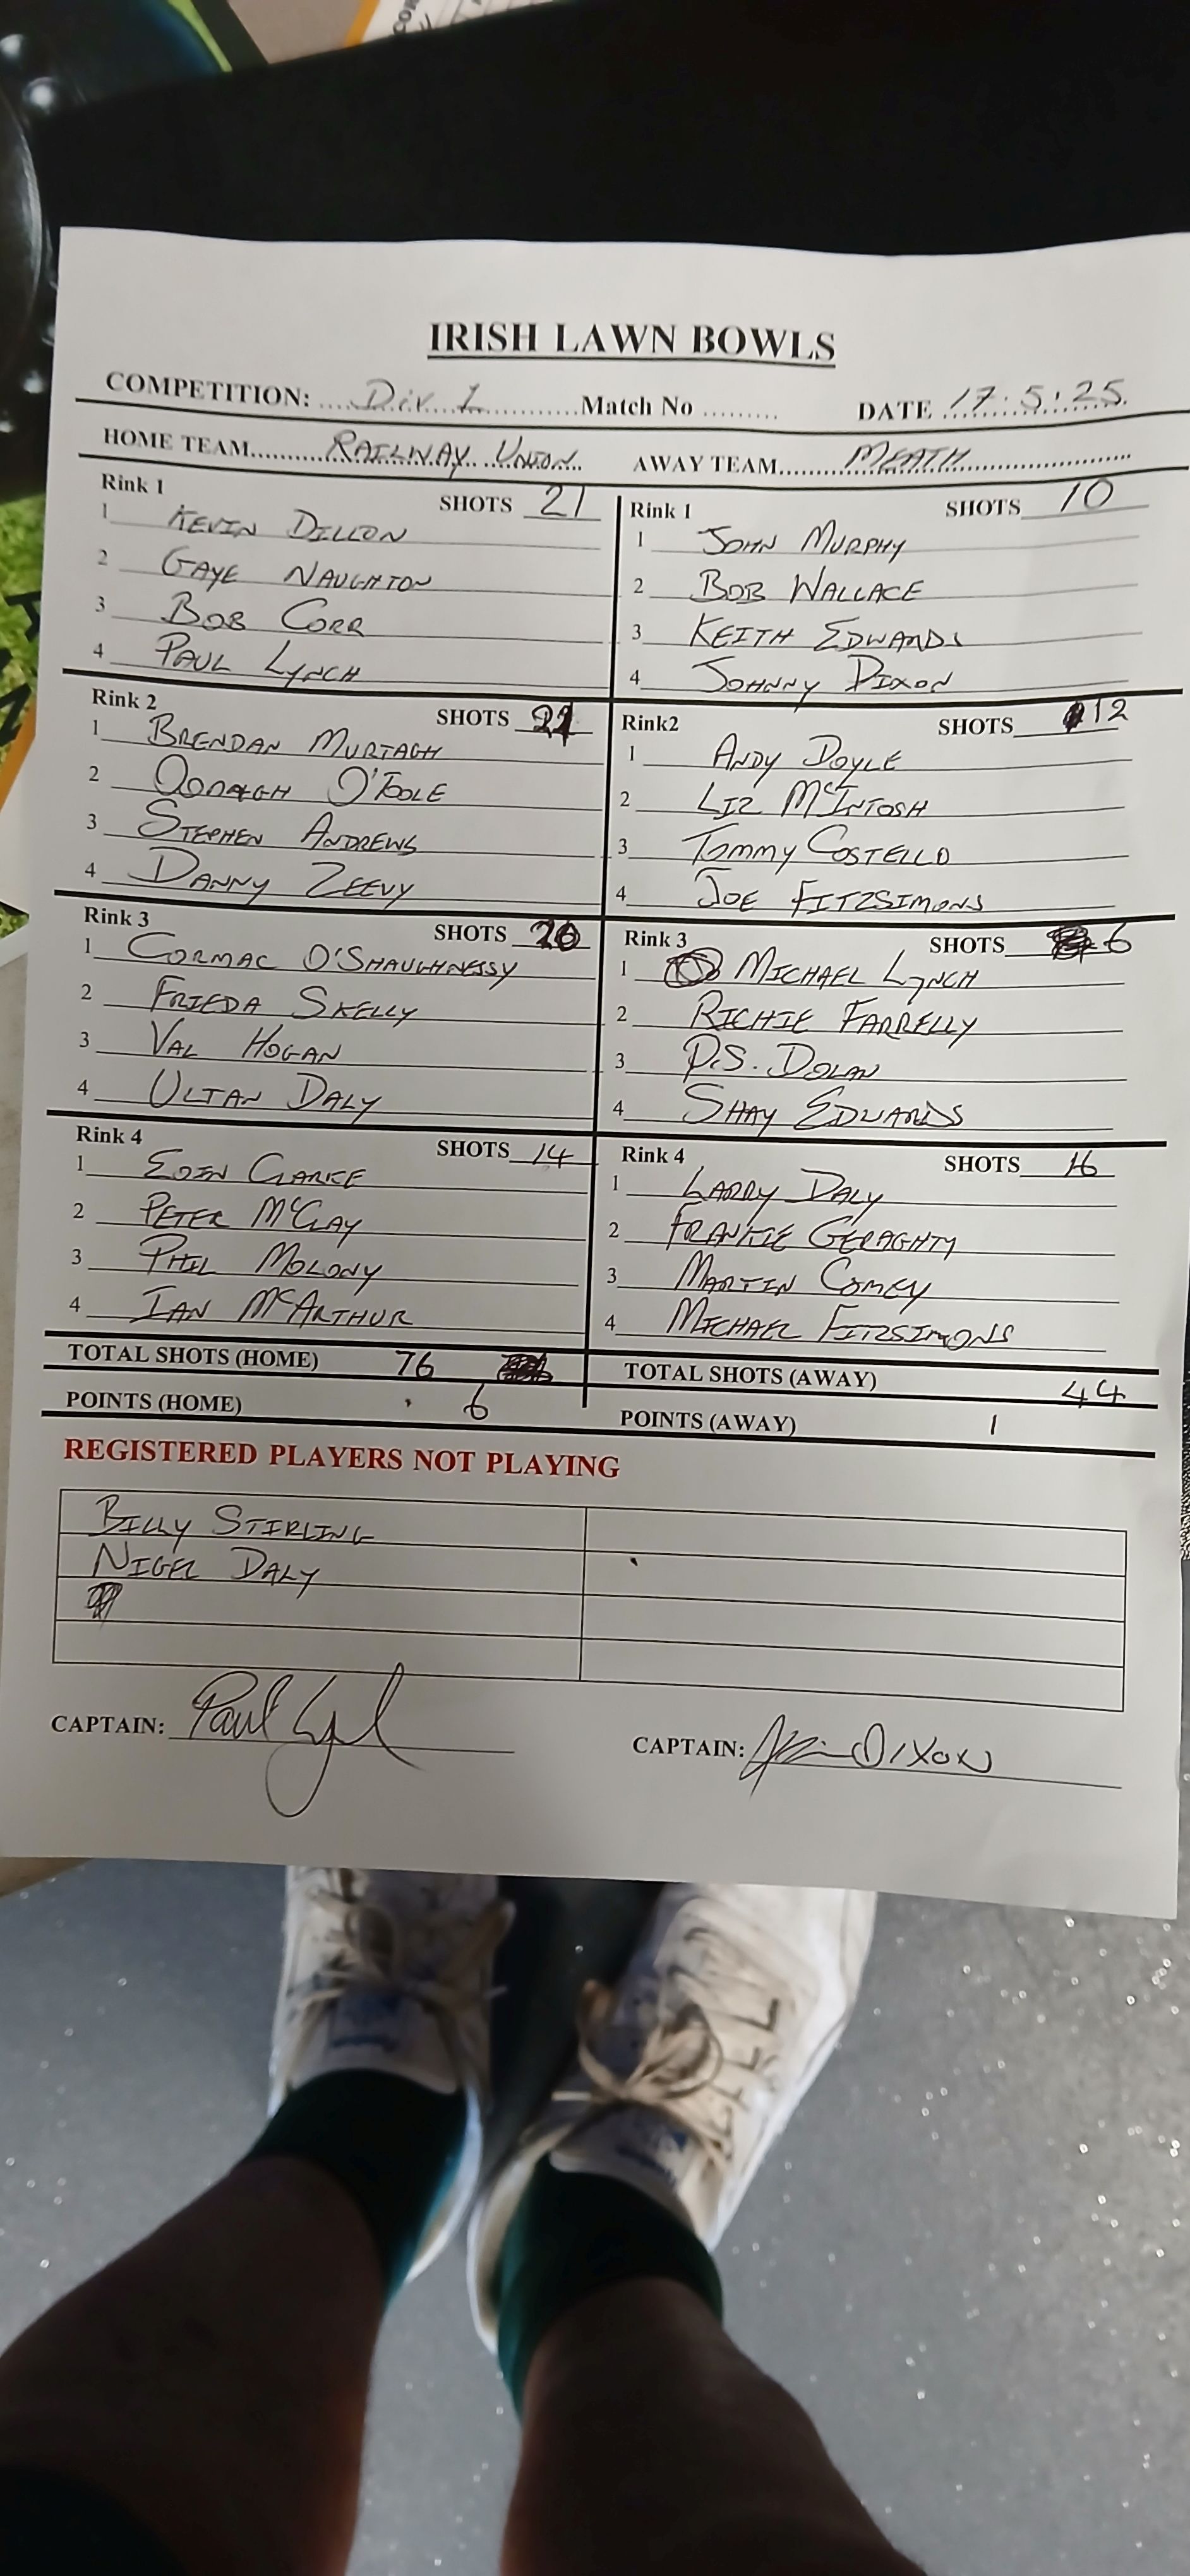 IRISH LAWN BOWLS
COMPETITION: Div 1 Match No ......... DATE 17.5.25.
HOME TEAM RAILWAY UNION AWAY TEAM MEATH
Rink 1 SHOTS 21
1 KEVIN DILLON
2 GAYE NAUGHTON
3 BOB CORR
4 PAUL LYNCH
Rink 1 SHOTS 10
1 JOHN MURPHY
2 BOB WALLACE
3 KEITH EDWARDS
4 JOHNNY DIXON
Rink 2 SHOTS 21
1 BRENDAN MURTAGH
2 OONAGH O'TOOLE
3 STEPHEN ANDREWS
4 DANNY ZEEVY
Rink2 SHOTS 12
1 ANDY DOYLE
2 LIZ McINTOSH
3 TOMMY COSTELLO
4 JOE FITZSIMONS
Rink 3 SHOTS 20
1 CORMAC O'SHAUGHNESSY
2 FRIEDA SKELLY
3 VAL HOGAN
4 ULTAN DALY
Rink 3 SHOTS 6
1 MICHAEL LYNCH
2 RICHIE FARRELLY
3 P.S. DOLAN
4 SHAY EDWARDS
Rink 4 SHOTS 14
1 EOIN CLARKE
2 PETER McCLAY
3 PHIL MOLONY
4 IAN McARTHUR
Rink 4 SHOTS 16
1 LARRY DALY
2 FRANKIE GERAGHTY
3 MARTIN COMEY
4 MICHAEL FITZSIMONS
TOTAL SHOTS (HOME) 76
TOTAL SHOTS (AWAY) 44
POINTS (HOME) 6
POINTS (AWAY) 1
REGISTERED PLAYERS NOT PLAYING
BILLY STIRLING
NIGEL DALY
CAPTAIN: Paul Lynch
CAPTAIN: DIXON